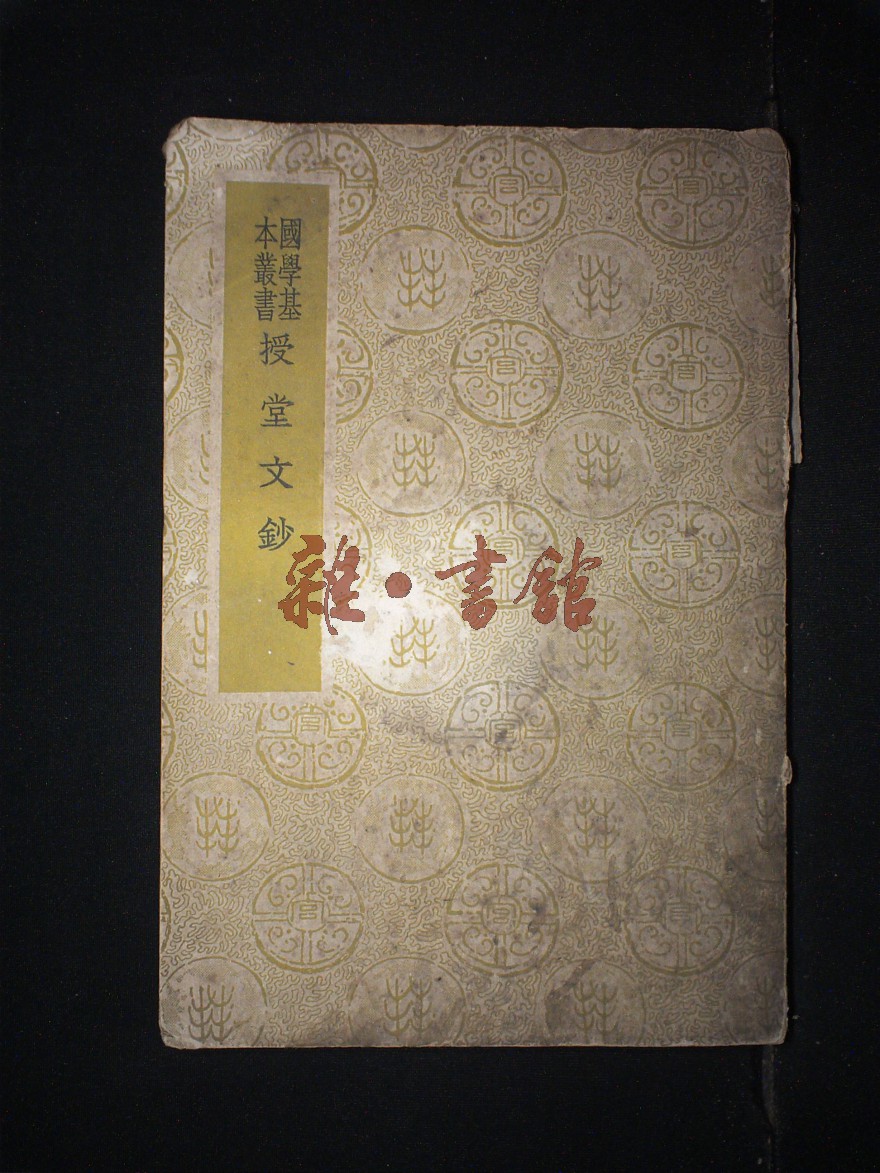 國學基
本叢書
授堂文鈔
雜·書館